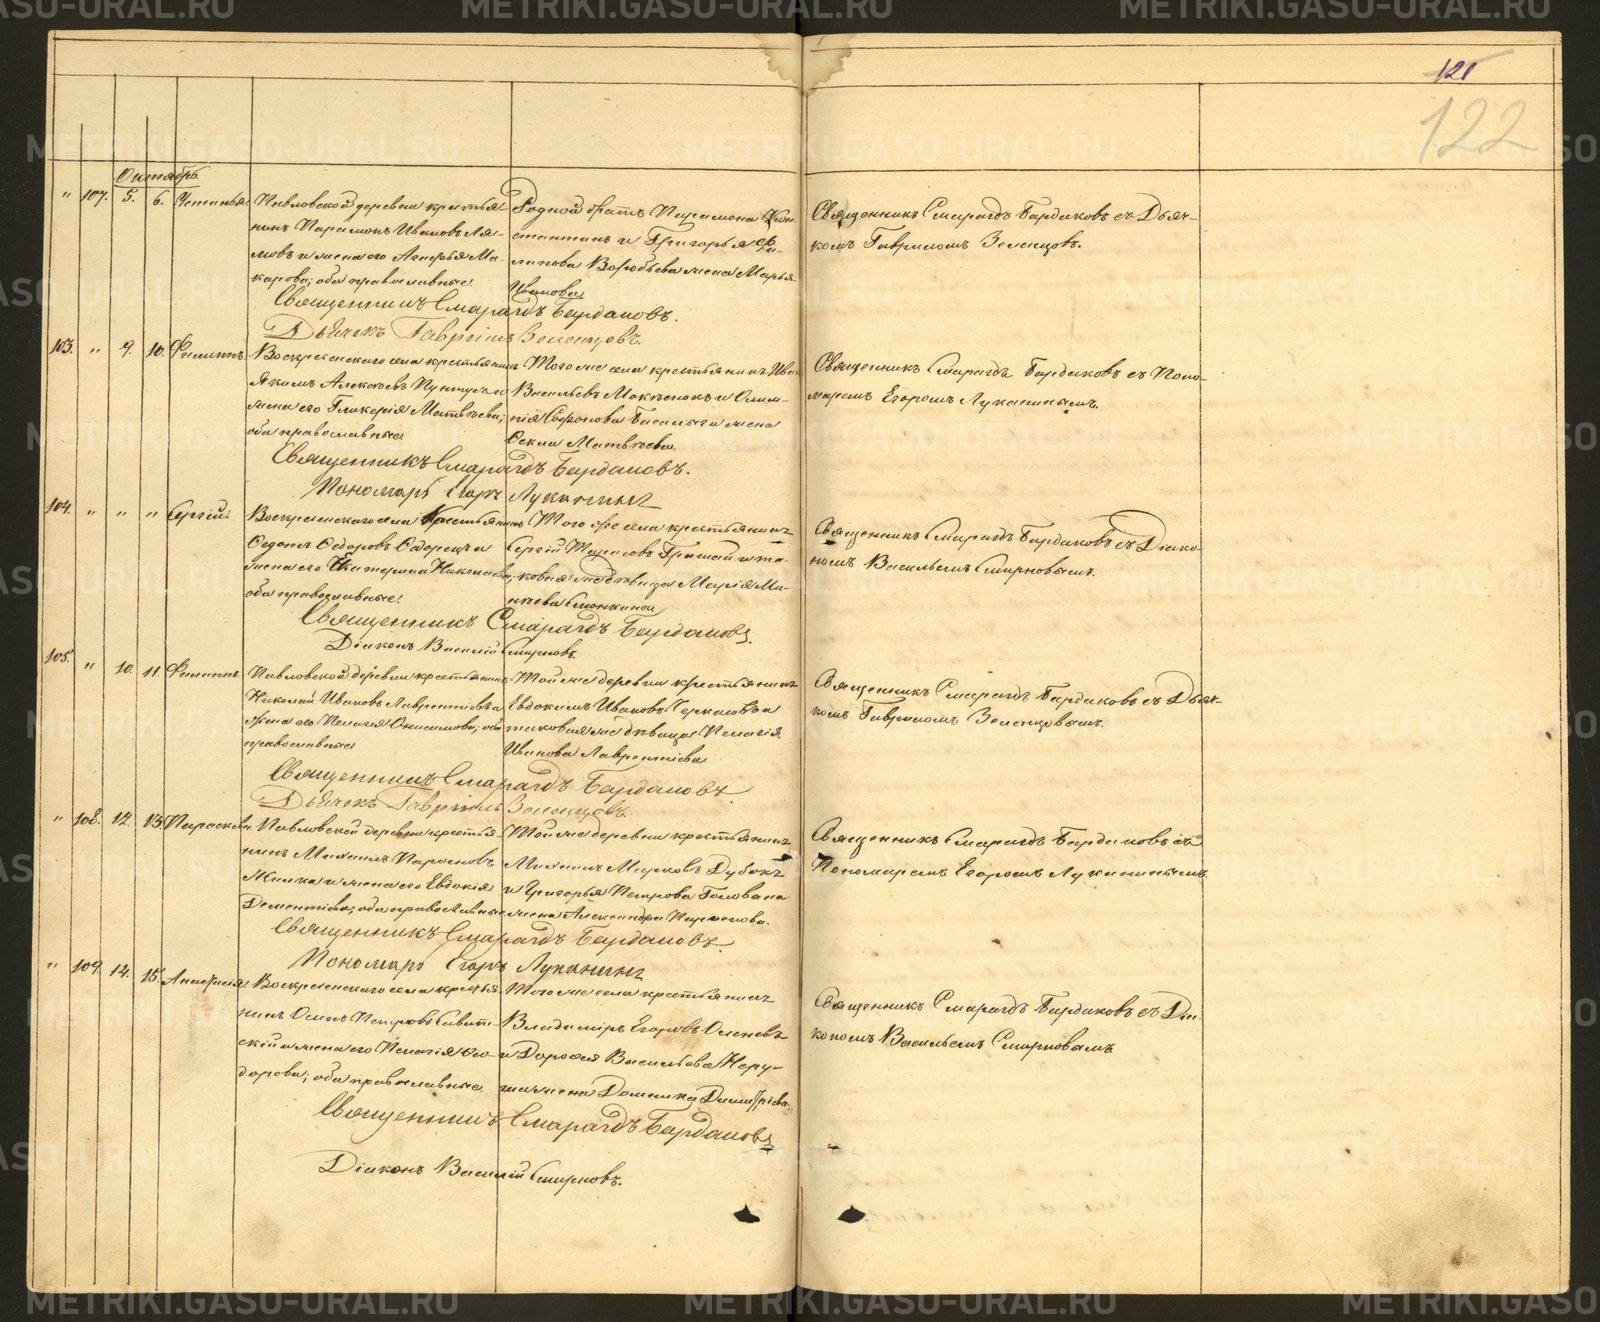 METRIKI.GASO-URAL.RU
121
122
Октябрь.
" 107. 5. 6. Устинья
Павловской деревни крестья-
нинъ Парамонъ Ивановъ Ля-
ховъ и жена его Агафья Ма-
карова; оба православные.
Родной братъ Парамона Кон-
стантинъ и Григорья Фи-
липова Воробьева жена Марья
Иванова.
Священникъ Смарагдъ Бардаковъ съ Дьяч-
комъ Гавриломъ Зеленцовъ.
Священникъ Смарагдъ Бардаковъ.
Дьячекъ Гавріилъ Зеленцовъ.
103. " 9. 10. Филиппъ.
Воскресенскаго села крестьянинъ
Якимъ Алексѣевъ и
жена его Гликерія Матвѣева;
оба православные.
Того же села крестьянинъ Иванъ
Васильевъ и Олим-
пія Софонова жена
Фекла Матвѣева.
Священникъ Смарагдъ Бардаковъ съ Поно-
маремъ Егоромъ Луканинымъ.
Священникъ Смарагдъ Бардаковъ.
Пономарь Егоръ Луканинъ
104. " " " Сергій.
Воскресенскаго села крестьянинъ
Федотъ Федоровъ и
жена его Екатерина Николаева;
оба православные.
Того же села крестьянинъ
Сергій Тарасовъ и та-
ковая же дѣвица Марія Ми-
хѣева
Священникъ Смарагдъ Бардаковъ съ Діако-
номъ Васильемъ Смирновымъ.
Священникъ Смарагдъ Бардаковъ.
Діаконъ Василій Смирновъ.
105. " 10. 11. Филиппъ.
Павловской деревни крестьянинъ
Николай Ивановъ Лаврентьевъ и
жена его Пелагія Онисимова; оба
православные.
Той же деревни крестьянинъ
Евдокимъ Ивановъ Черкасовъ и
таковая же дѣвица Пелагія
Иванова Лаврентіева.
Священникъ Смарагдъ Бардаковъ съ Дьяч-
комъ Гавриломъ Зеленцовымъ.
Священникъ Смарагдъ Бардаковъ.
Дьячекъ Гавріилъ Зеленцовъ.
" 108. 12. 13. Параскева.
Павловской деревни крестья-
нинъ Михаилъ
и жена его Евдокія
Дементіева; оба православные
Той же деревни крестьянинъ
Михаилъ Марковъ
и Григорья Петрова Голована
жена Александра
Священникъ Смарагдъ Бардаковъ съ
Пономаремъ Егоромъ Луканинымъ.
Священникъ Смарагдъ Бардаковъ.
Пономарь Егоръ Луканинъ
" 109. 14. 15. Анастасія
Воскресенскаго села крестья-
нинъ Осипъ Петровъ Савит-
скій и жена его Пелагія Фео-
дорова; оба православные.
Того же села крестьянинъ
Владиміръ Егоровъ Оленевъ
и Дорофея Васильева
жена Домника Димитріева.
Священникъ Смарагдъ Бардаковъ съ Діа-
кономъ Васильемъ Смирновымъ.
Священникъ Смарагдъ Бардаковъ
Діаконъ Василій Смирновъ.